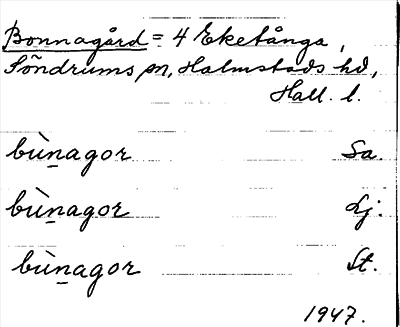 Bonnagård = 4 Eketånga,
Söndrums sn, Halmstads hd,
Hall. l.
bùn̲agor Sa.
bùn̲agor Lj.
bùn̲agor St.
1947.